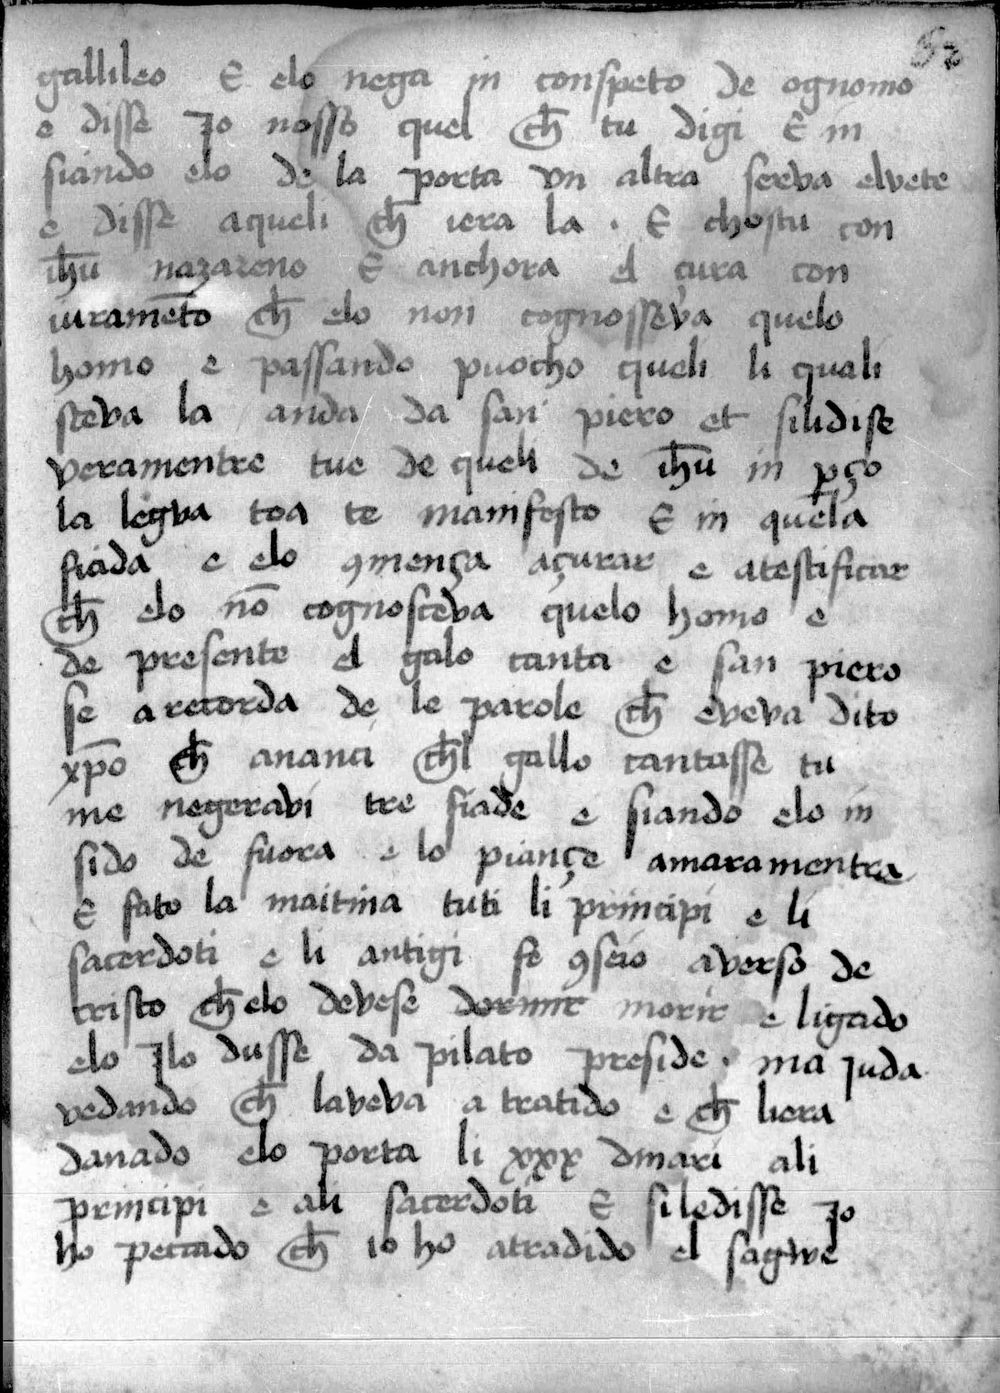 gallileo E elo nega in conspeto de ognomo
e disse Io nosso quel ch̄ tu digi E in
siando elo de la porta vn altra serva elvete
e disse aqueli ch̄ iera la . E chostu con
ih̄u nazareno E anchora el çura con
iuramēto ch̄ elo non cognosseva quelo
homo e passando puocho queli li quali
steva la anda da san piero et silidise
veramentre tue de queli de ih̄u in p̱ço
la lēgva toa te manifesto E in quela
fiada e elo ꝯmença açurar e atestificar
ch̄ elo nō cognosceva quelo homo e
de presente el galo canta e san piero
se arecorda de le parole ch̄ eveva dito
xp̄o ch̄ ananci ch̄l gallo cantasse tu
me negeravi tre fiade e siando elo in
sido de fuora e lo piançe amaramentre
E fato la maitina tuti li principi e li
sacerdoti e li antigi fe ꝯseio averso de
cristo ch̄ elo devese dormir morir e ligado
elo Ilo dusse da pilato preside . ma Juda
vedando ch̄ laveva a tratido e ch̄ liera
danado elo porta li xxx dinari ali
principi e ali sacerdoti E siledisse Io
ho peccado ch̄ io ho atradido el sagwe